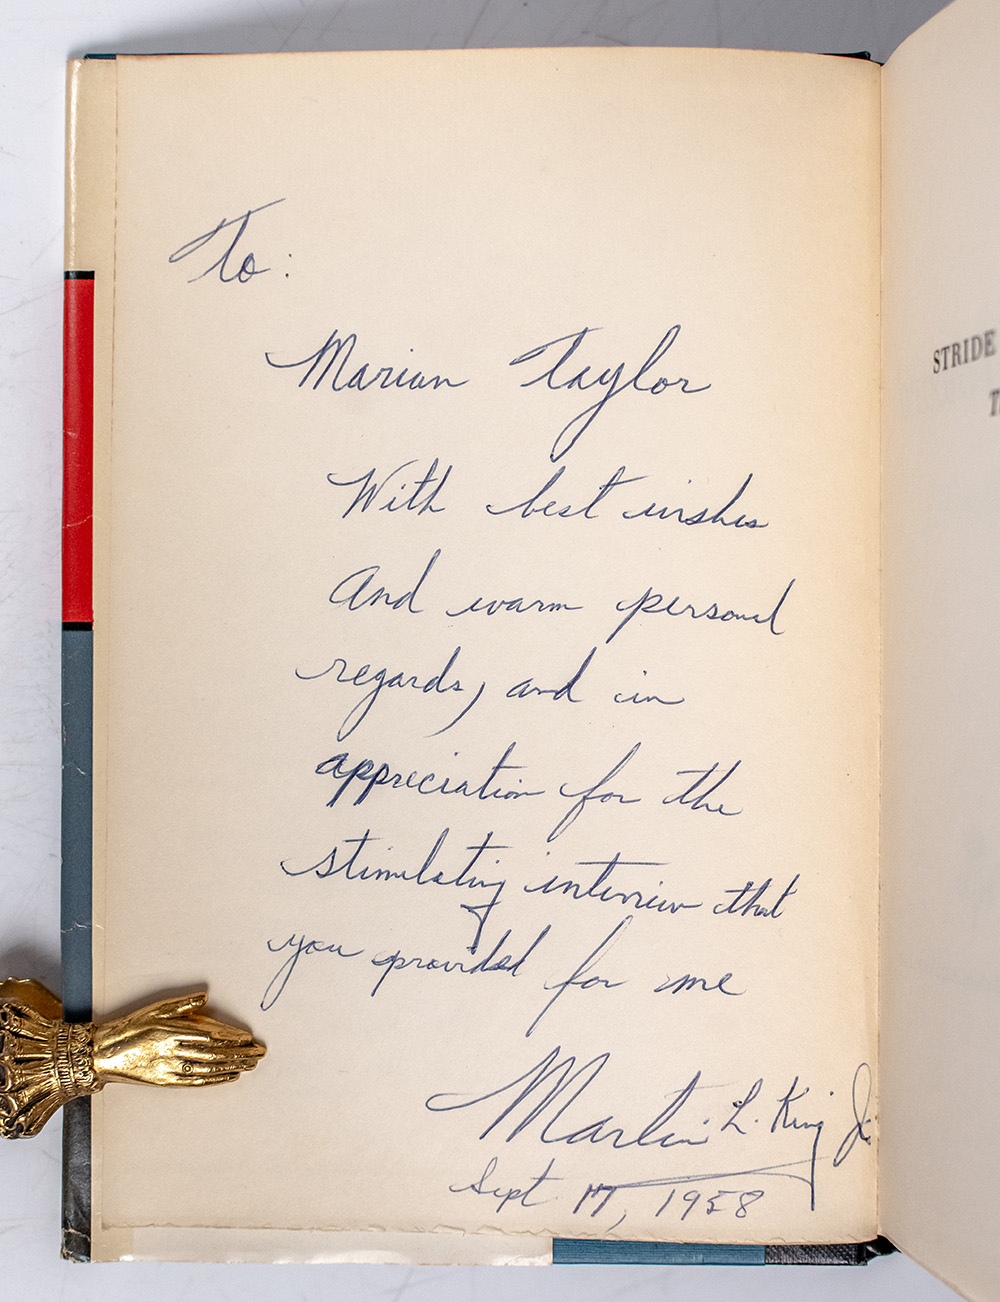 To:
Marian Taylor
With best wishes
And warm personal
regards, and in
appreciation for the
stimulating interview that
you provided for me
Martin L. King Jr.
Sept. 17, 1958
STRIDE
T